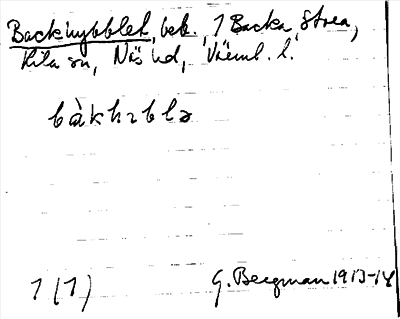 Backhybblet, beb., 1 Backa, Stora,
Kila sn, Näs hd, Värml. l.
bàkhɪblə
1 (1)
G. Bergman 1913-14